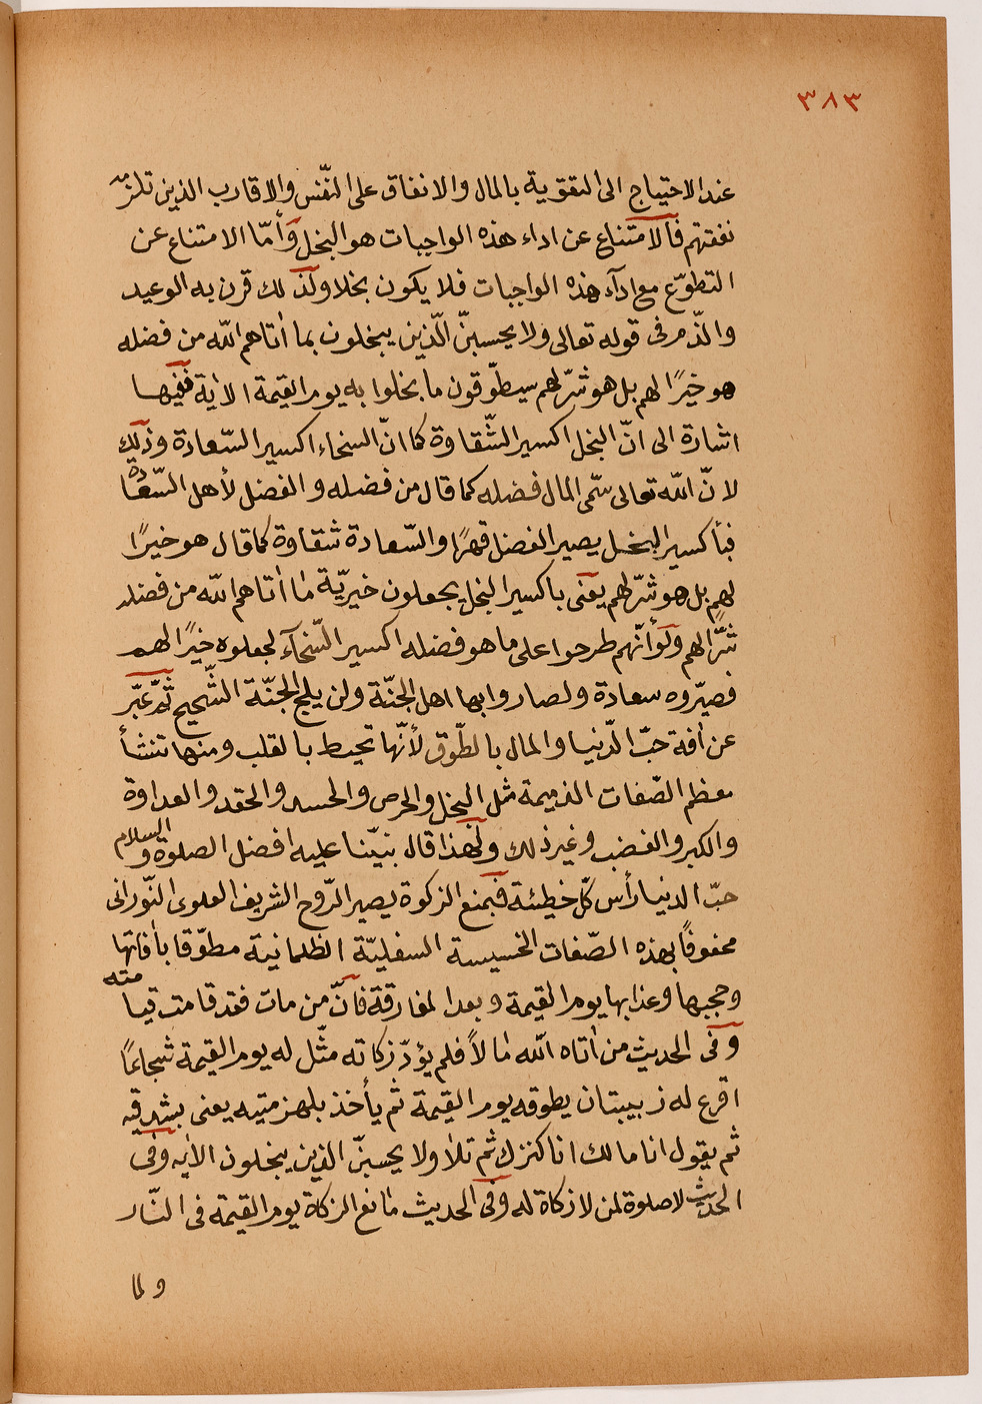 ٣٨٣
عند الاحتياج الى التقوية بالمال والانفاق على النّفس والاقارب الذين تلزمه
نفقتهم فالامتناع عن اداء هذه الواجبات هو البخل وأمّا الامتناع عن
التطوّع مع ادآء هذه الواجبات فلا يكون بخلا ولذلك قرن به الوعيد
والذّم فى قوله تعالى ولا يحسبنّ الّذين يبخلون بما اٰتاهم اللّه من فضله
هو خيرًا لهم بل هو شرّ لهم سيطوّقون ما بخلوا به يوم القيمة الاٰية ففيها
اشارة الى انّ البخل اكسير الشّقاوة كما انّ السخاء اكسير السّعادة وذلك
لانّ اللّه تعالى سّمى المال فضله كما قال من فضله والفضل لأهل السّعادة
فبأكسير البخل يصير الفضل قهرًا والسّعادة شقاوة كما قال هو خيرًا
لهم بل هو شرّ لهم يعنى باكسير البخل يجعلون خيريّة ما اٰتاهم اللّه من فضله
شرًّا لهم ولو أنّهم طرحوا على ما هو فضله اكسير السّخآء لجعلوه خيرًا لهم
فصيّروه سعادة ولصاروا بها اهل الجنّة ولن يلج الجنّة الشّحيح ثمّ عبّر
عن اٰفة حبّ الدّنيا والمال بالطّوق لأنّها تحيط بالقلب ومنها تنشأ
معظم الصّفات الذميمة مثل البخل والحرص والحسد والحقد والعداوة
والكبر والغضب وغير ذلك ولهذا قال نبيّنا عليه افضل الصلوة والسلام
حبّ الدنيا رأس كلّ خطيئة فبمنع الزكوة يصير الرّوح الشريف العلوى النّورانى
محفوفاً بهذه الصّفات الخسيسة السفليّة الظلمانية مطوّقا باٰفاتها
وحجبها وعذابها يوم القيمة وبعد المفارقة فانّ من مات فقد قامت قيامته
وفى الحديث من اٰتاه اللّه مالاً فلم يؤدّ زكاته مثّل له يوم القيمة شجاعًا
اقرع له زبيبتان يطوقه يوم القيمة ثم يأخذ بلهزمتيه يعنى بشدقيه
ثم يقول انا مالك انا كنزك ثم تلا ولا يحسبنّ الذين يبخلون الاٰيه وفى
الحديث لا صلوة لمن لا زكاة له وفى الحديث مانع الزكاة يوم القيمة فى النّار
ولما